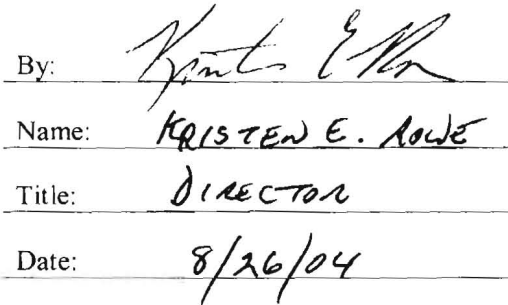 By: Kristen E. Rowe
Name: KRISTEN E. ROWE
Title: DIRECTOR
Date: 8/26/04